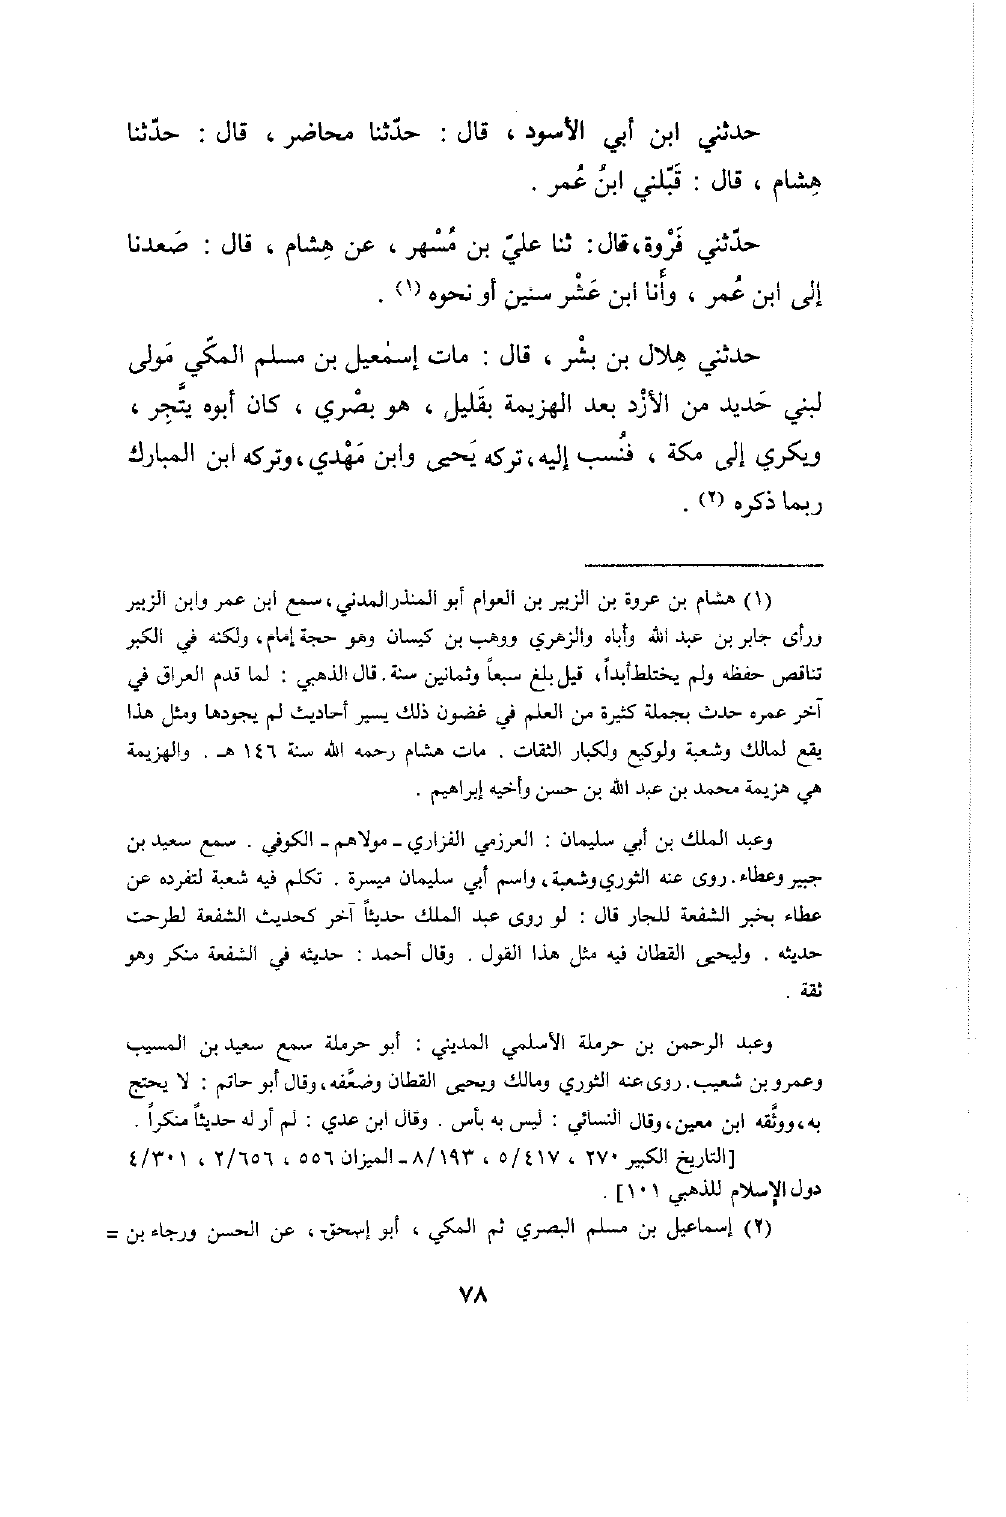 حدثني ابن أبي الأسود ، قال : حدّثنا محاضر ، قال : حدّثنا
هِشام ، قال : قَبّلني ابنُ عُمر .
حدّثني فَرْوة، قال: ثنا عليّ بن مُسْهر ، عن هِشام ، قال : صَعدنا
إلى ابن عُمر ، وأَنا ابن عَشْر سنين أو نحوه (١) .
حدثني هِلال بن بشْر ، قال : مات إسمٰعيل بن مسلم المكّي مَولى
لبني حَديد من الأزْد بعد الهزيمة بقَليل ، هو بصْري ، كان أبوه يتَّجر ،
ويكري إلى مكة ، فنُسب إليه، تركه يَحيى وابن مَهْدي، وتركه ابن المبارك
ربما ذكره (٢) .
(١) هشام بن عروة بن الزبير بن العوام أبو المنذر المدني، سمع ابن عمر وابن الزبير
ورأى جابر بن عبد الله وأباه والزهري ووهب بن كيسان وهو حجة إمام، ولكنه في الكبر
تناقص حفظه ولم يختلط أبداً، قيل بلغ سبعاً وثمانين سنة. قال الذهبي : لما قدم العراق في
آخر عمره حدث بجملة كثيرة من العلم في غضون ذلك يسير أحاديث لم يجودها ومثل هذا
يقع لمالك وشعبة ولوكيع ولكبار الثقات . مات هشام رحمه الله سنة ١٤٦ هـ . والهزيمة
هي هزيمة محمد بن عبد الله بن حسن وأخيه إبراهيم .
وعبد الملك بن أبي سليمان : العرزمي الفزاري ـ مولاهم ـ الكوفي . سمع سعيد بن
جبير وعطاء. روى عنه الثوري وشعبة، واسم أبي سليمان ميسرة . تكلم فيه شعبة لتفرده عن
عطاء بخبر الشفعة للجار قال : لو روى عبد الملك حديثاً آخر كحديث الشفعة لطرحت
حديثه . وليحيى القطان فيه مثل هذا القول . وقال أحمد : حديثه في الشفعة منكر وهو
ثقة .
وعبد الرحمن بن حرملة الأسلمي المديني : أبو حرملة سمع سعيد بن المسيب
وعمرو بن شعيب. روى عنه الثوري ومالك ويحيى القطان وضعَّفه، وقال أبو حاتم : لا يحتج
به، ووثَّقه ابن معين، وقال النسائي : ليس به بأس . وقال ابن عدي : لم أر له حديثاً منكراً .
[التاريخ الكبير ٢٧٠ ، ٥/٤١٧ ، ٨/١٩٣ ـ الميزان ٥٥٦ ، ٢/٦٥٦ ، ٤/٣٠١
دول الإسلام للذهبي ١٠١] .
(٢) إسماعيل بن مسلم البصري ثم المكي ، أبو إسحق، عن الحسن ورجاء بن =
٧٨